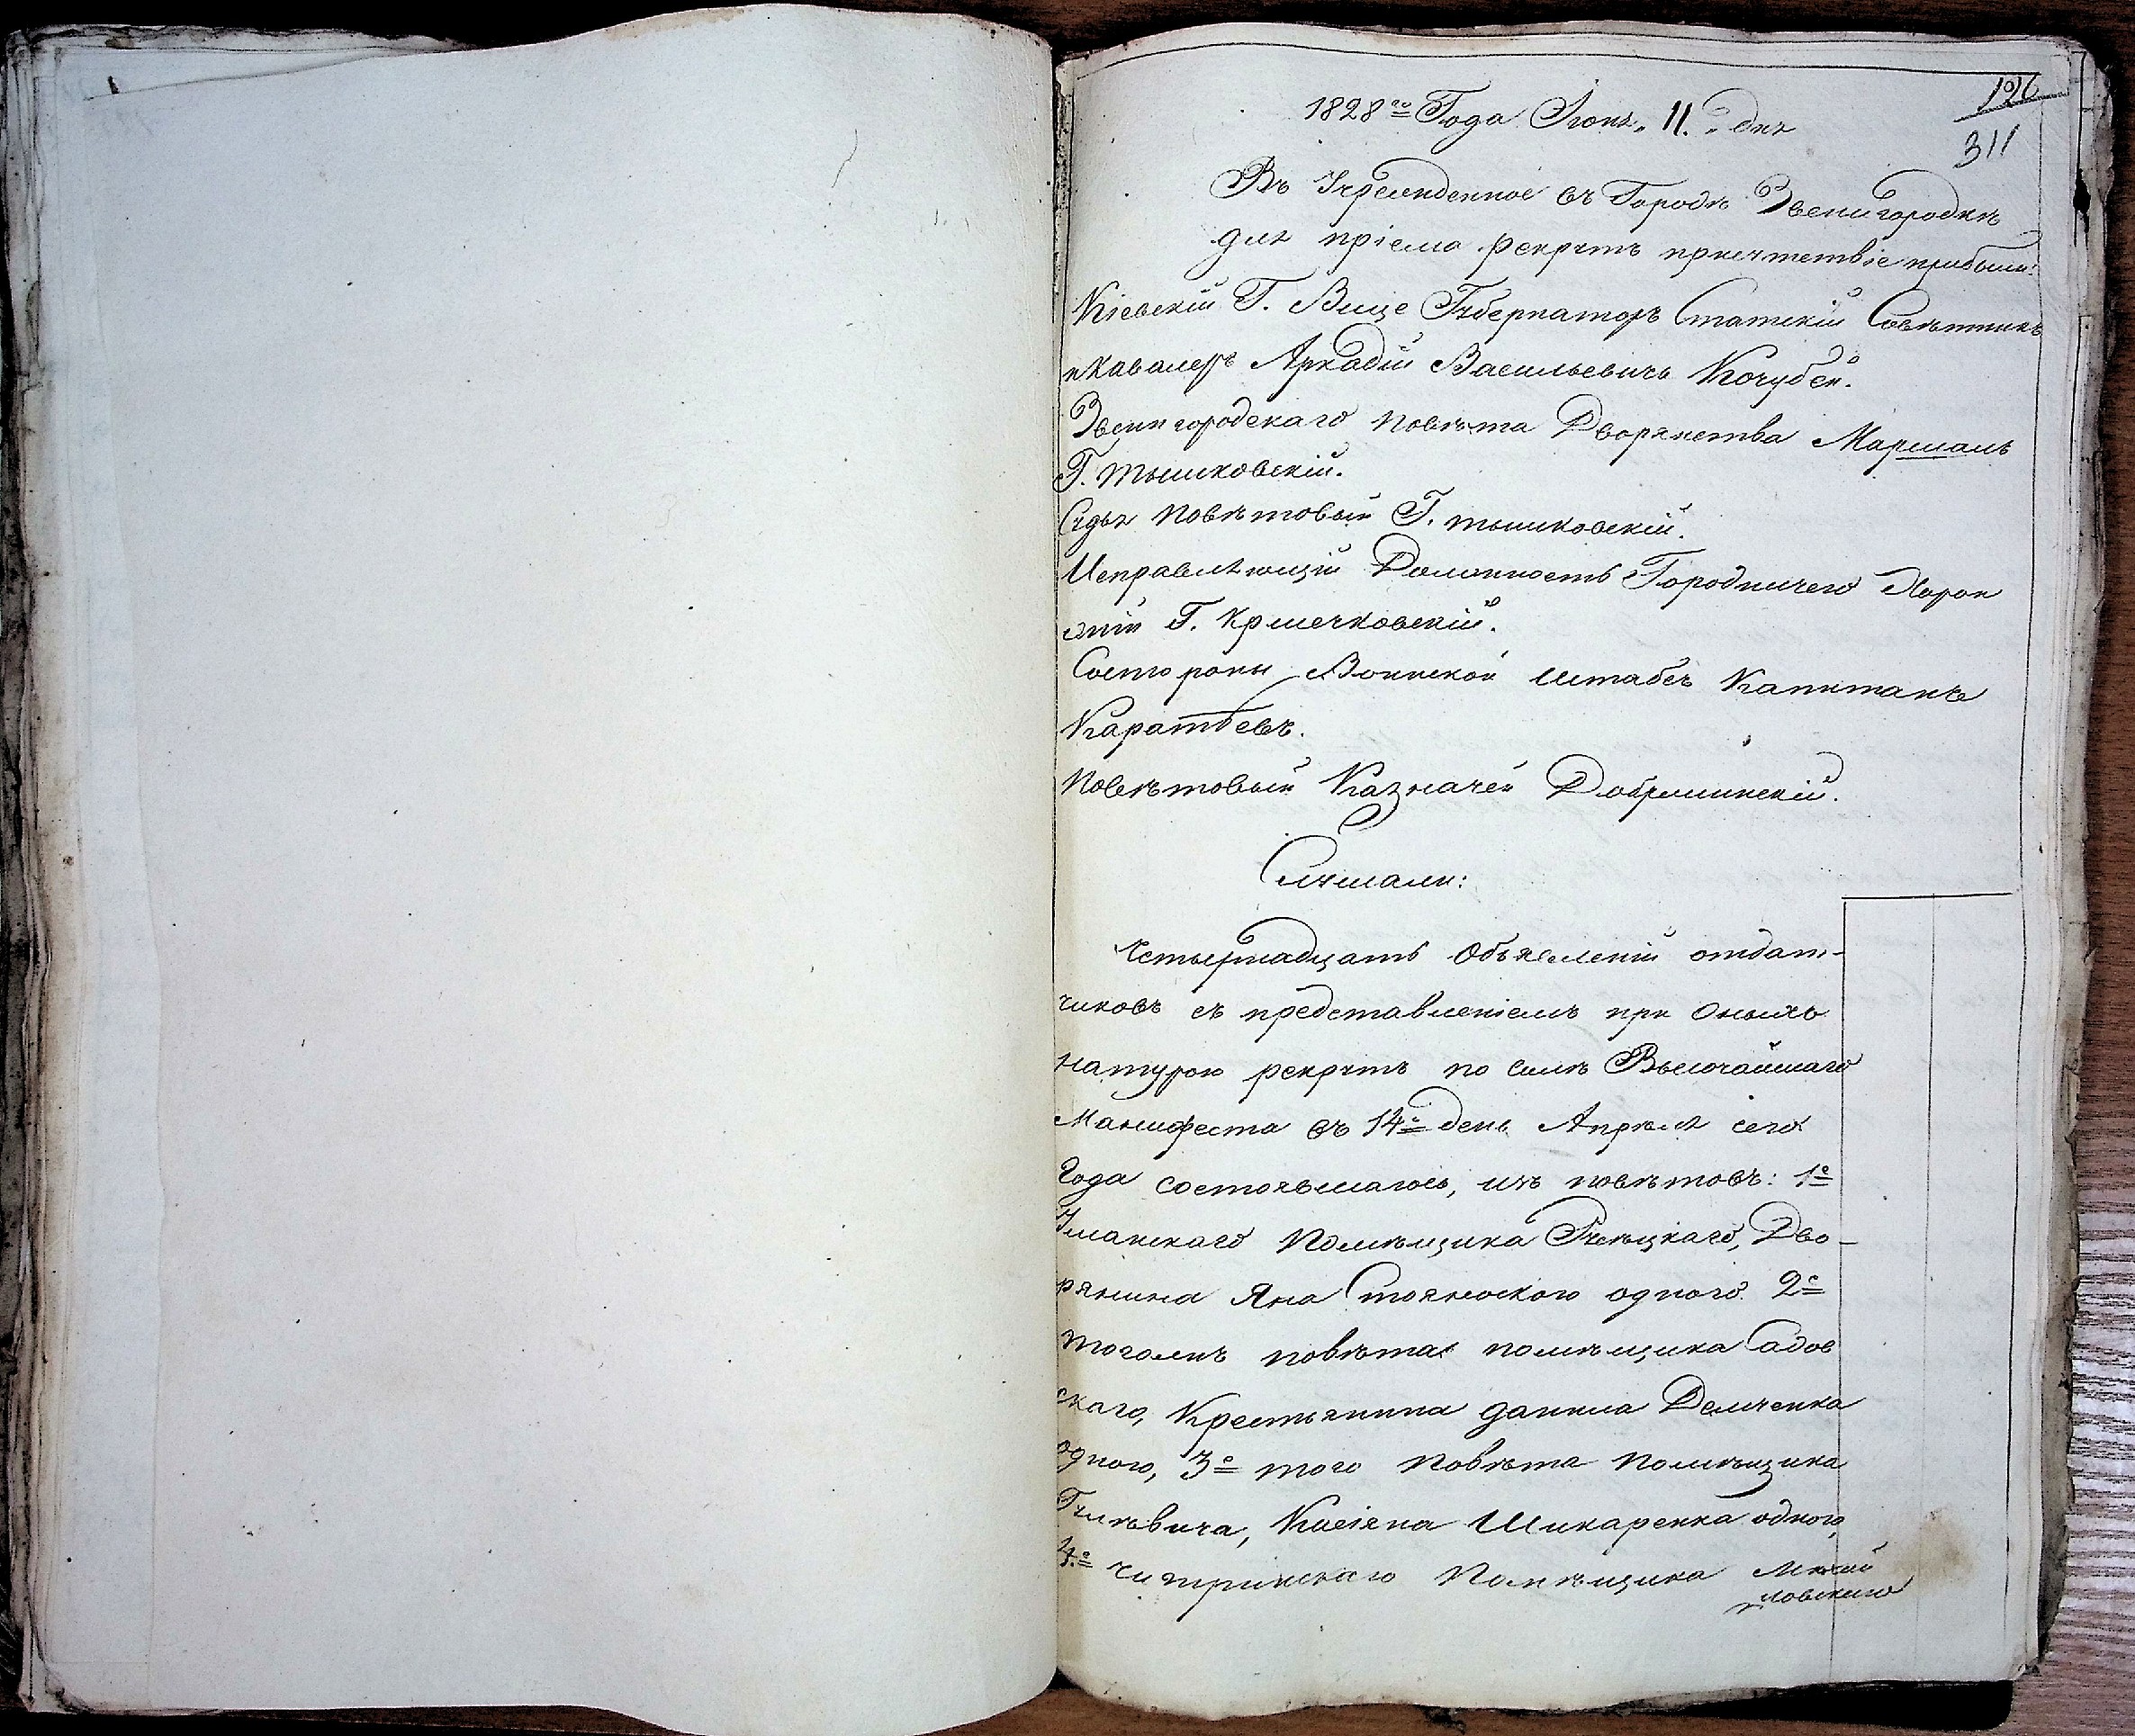 196
311
1828го Года Июня 11. дня
Въ Учрежденное въ Городѣ Звенигородкѣ
для пріема рекрутъ присутствіе прибыли:
Кіевскій Г. Вице Губернаторъ Статскій Совѣтникъ
и Кавалеръ Аркадій Васильевичь Кочубей.
Звенигородскаго повѣта Дворянства Маршалъ
Г. Тышковскій.
Судья повѣтовый Г. тышковскій.
Исправляющій Должность Городничего Хорон
жій Г. Кршечковскій.
Состороны Воинской Штабсъ Капитанъ
Каратѣевъ.
Повѣтовый Казначей Добршинскій.
Слушали:
Четырнадцать Объявленій отдат-
чиковъ съ представленіемъ при Оныхъ
натурою рекрутъ по силѣ Высочайшаго
Манифеста въ 14е день Апрѣля сего
Года состоявшагось, изъ повѣтовъ: 1е
Уманскаго Помѣщика Дво-
рянина Яна одного 2е
тогожъ повѣта помѣщика Садов
скаго, Крестьянина данила Демченка
одного, 3е того Повѣта Помѣщика
Касіяна Шикаренка одного,
4.е чигринскаго Помѣщика Михай
ловскаго